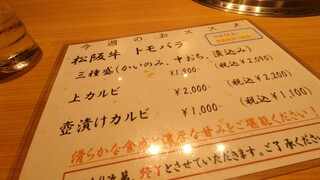 今週のおススメ
松阪牛 トモバラ
三種盛(かいのみ、中おち、漬込み)
¥1,900 (税込¥2,090)
上カルビ ¥2,000 (税込¥2,200)
壺漬けカルビ ¥1,000 (税込¥1,100)
滑らかな食感と濃厚な甘みをご堪能ください!
終了とさせていただきます。ご了承くださ